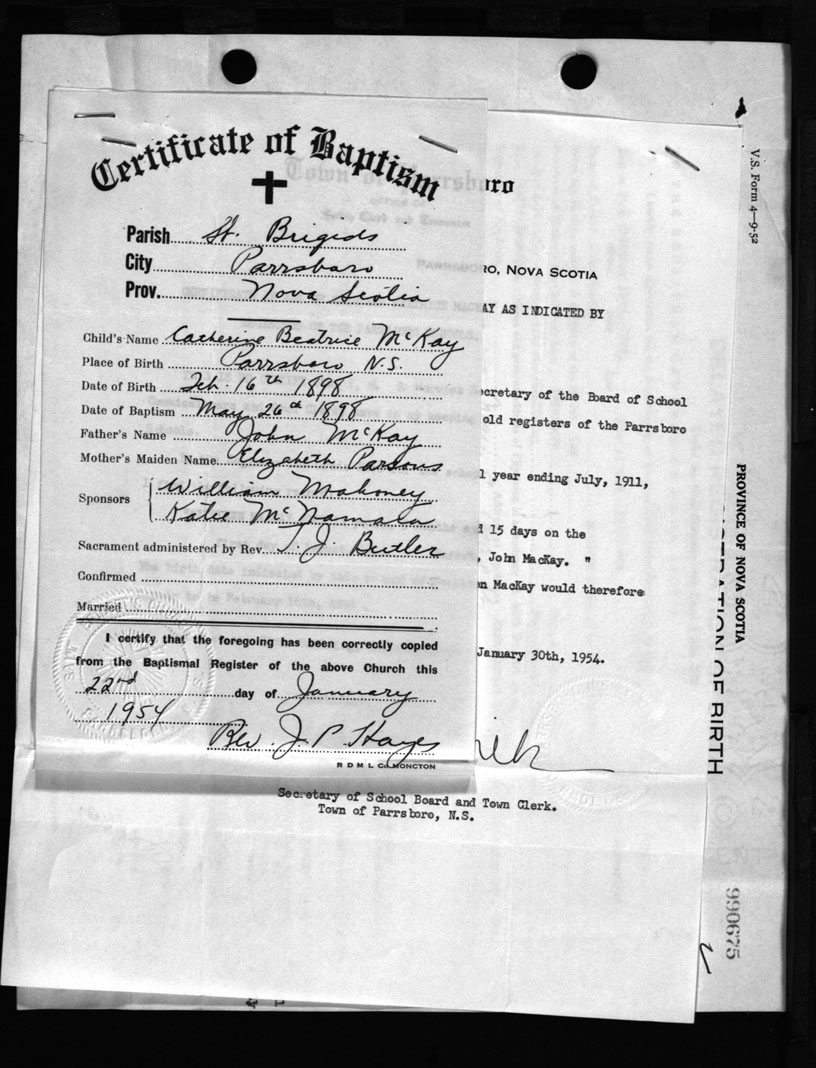 Certificate of Baptism
Parish St. Brigids
City Parrsboro
Prov. Nova Scotia
Child's Name Catherine Beatrice McKay
Place of Birth Parrsboro N.S.
Date of Birth Feb. 16th 1898
Date of Baptism May 26th 1898
Father's Name John McKay
Mother's Maiden Name Elizabeth Parsons
Sponsors William Mahoney
Katie McNamara
Sacrament administered by Rev. T. J. Butler
Confirmed
Married
I certify that the foregoing has been correctly copied
from the Baptismal Register of the above Church this
22nd day of January
1954
Rev. J. P. Hayes
R D M L Co MONCTON
oro
RO, NOVA SCOTIA
AY AS INDICATED BY
ecretary of the Board of School
old registers of the Parrsboro
l year ending July, 1911,
15 days on the
, John MacKay. "
n MacKay would therefore
January 30th, 1954.
Secretary of School Board and Town Clerk.
Town of Parrsboro, N.S.
V.S. Form 4—9-52
PROVINCE OF NOVA SCOTIA
STRATION OF BIRTH
990675